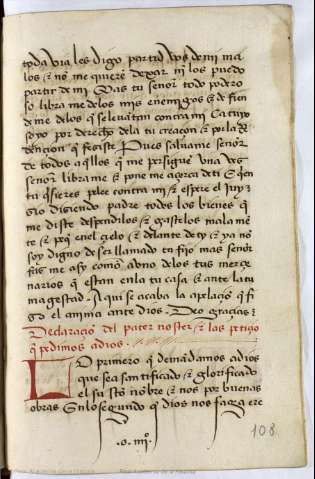 toda via les digo partid vos de mi ma
los & no me quierē dexar nj los puedo
partir de mi Mas tu señor todo podero
so libra me delos mis enemigos & defien
de me delos q̄ se leuātan contra mi Ca tuyo
soyo por derecho dela tu creaçon & por la Re
dençion q̄ fesiste Pues saluame señor
de todos aq̄llos q̄ me persiguē vna ves
señor libra me & pone me açerca de ti & q̄en
tu q̄sieres pelee contra mi & espere el Juy
sio disiendo padre todos los bienes q̄
me diste despendilos & gastelos mala mē
te & peq̄ enel çielo & delante de ty & ya nō
soy digno de ser llamado tu fijo mas señor
fas me asy como avno delos tus merçe
narios q̄ estan en la tu casa & ante la tu
magestad Aqui se acaba la apelaçiō q̄ fi
so el anima ante dios Deo graçias
Declaraçiō del pater noster & las petiçio
q̄ pedimos a dios
LO primero q̄ demādamos a dios
que sea santificado & glorificado
el su sto nōbre & nos por buenas
obras Enlo segundo q̄ dios nos faga ere
108